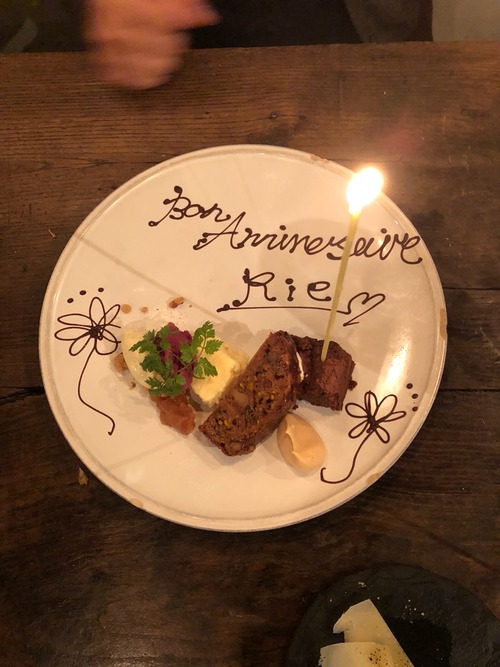 Bon
Anniversaire
Rie